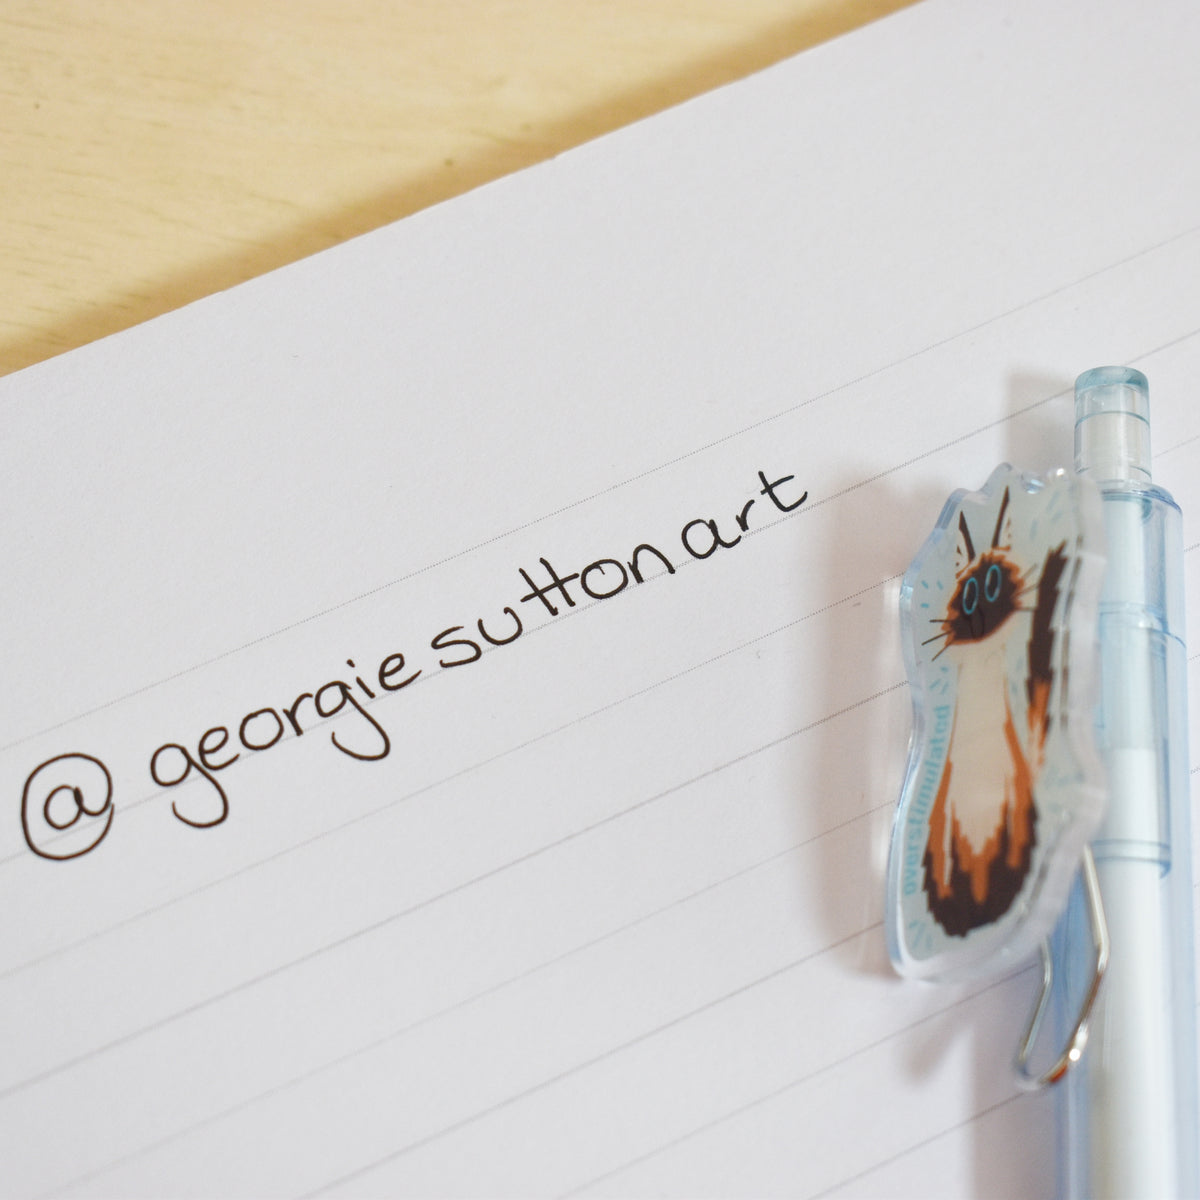 @georgiesuttonart
overstimulated